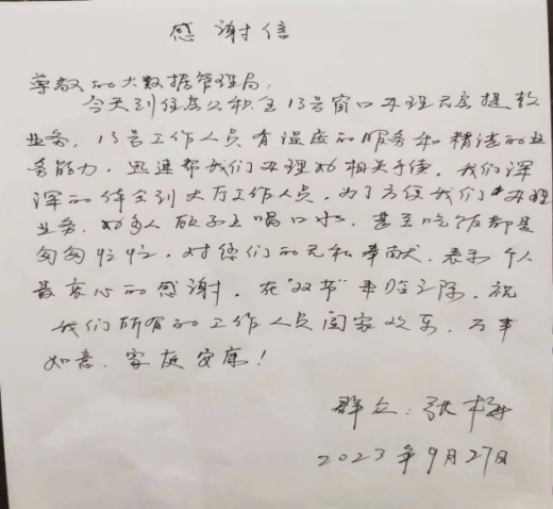 感谢信
尊敬的大数据管理局：
今天到住房公积金13号窗口办理无房提取
业务，13号工作人员有温度的服务和精湛的业
务能力，迅速帮我们办理好相关手续，我们深
深的体会到大厅工作人员，为了方便我们办理
业务，好多人顾不上喝口水，甚至吃饭都是
匆匆忙忙，对您们的无私奉献，表示个人
最衷心的感谢，在"双节"来临之际，祝
我们所有的工作人员阖家欢乐，万事
如意，家庭安康！
群众：张梅
2023年9月27日